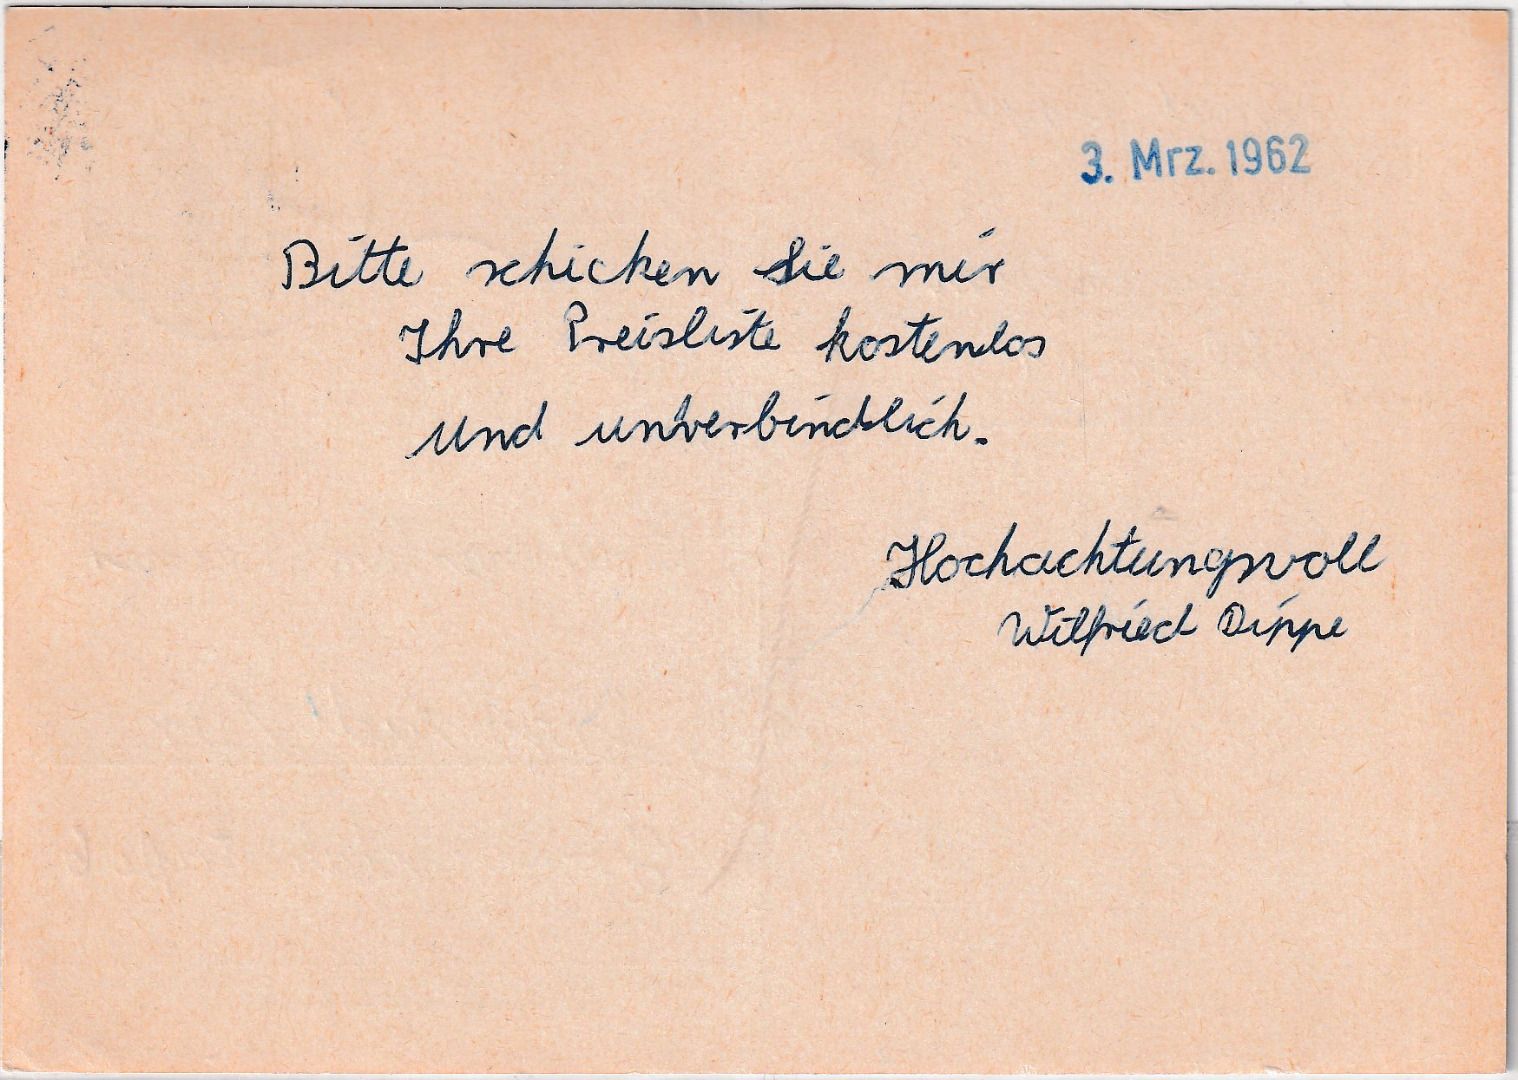 3. Mrz. 1962
Bitte schicken Sie mir
Ihre Preisliste kostenlos
und unverbindlich.
Hochachtungsvoll
Wilfried Dippe